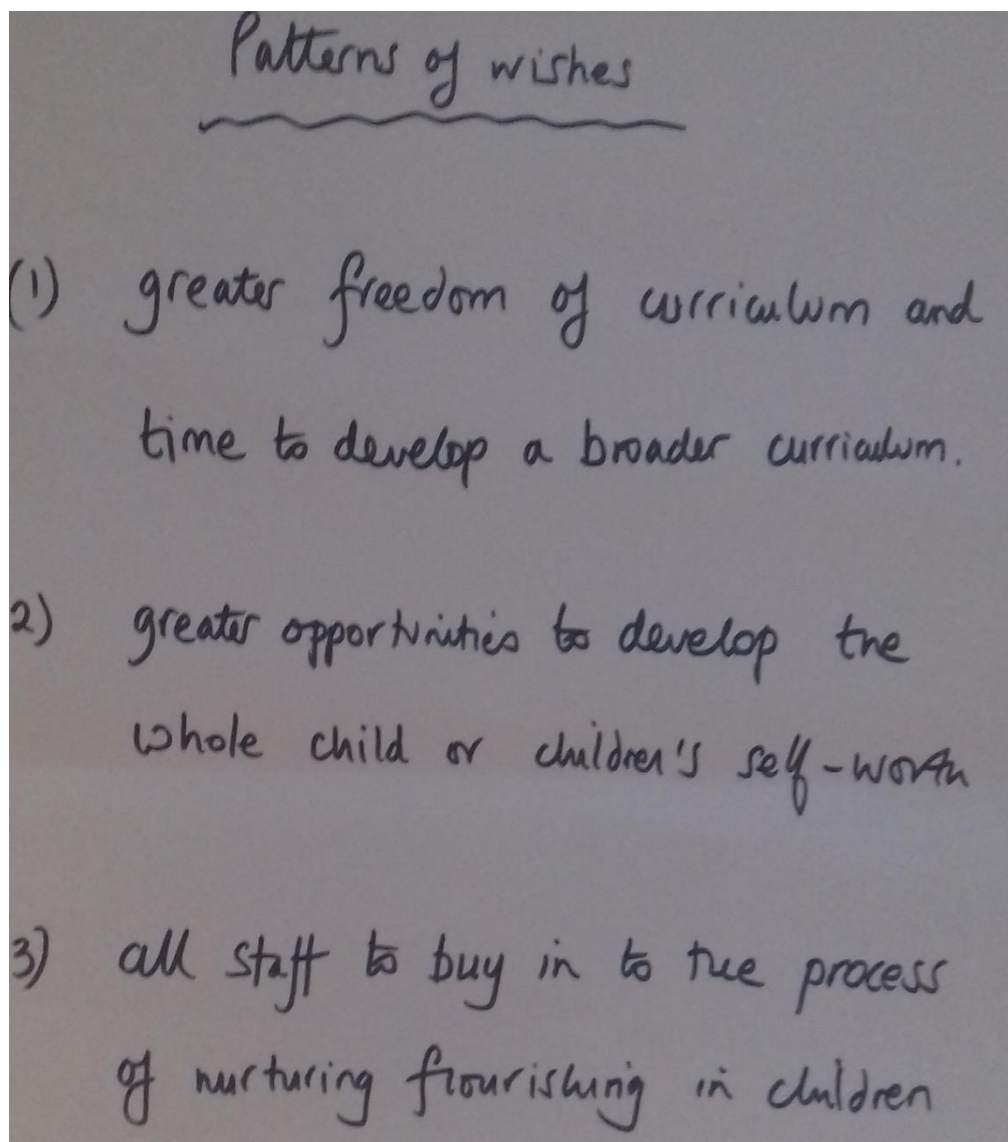 Patterns of wishes
(1) greater freedom of curriculum and
time to develop a broader curriculum.
2) greater opportunities to develop the
whole child or children's self-worth
3) all staff to buy in to the process
of nurturing flourishing in children